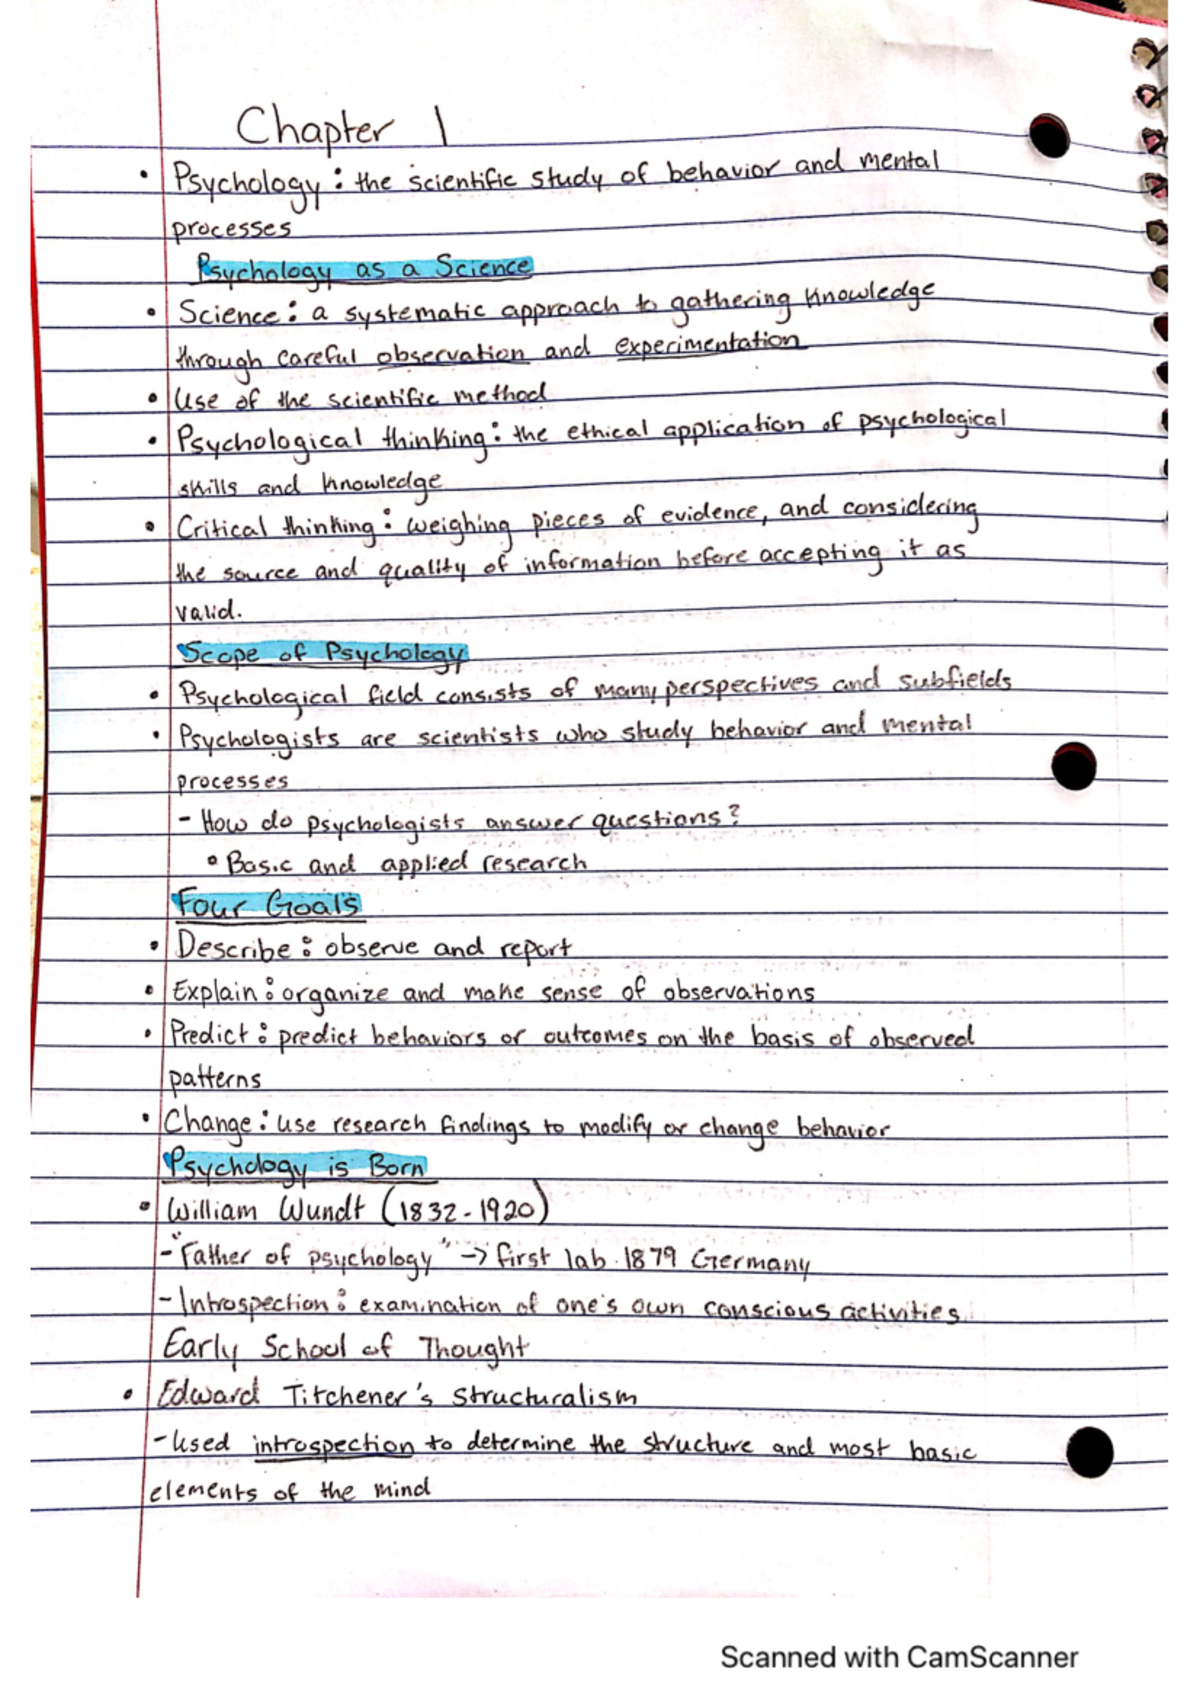 Chapter 1
• Psychology: the scientific study of behavior and mental
processes
Psychology as a Science
• Science: a systematic approach to gathering knowledge
through careful observation and experimentation
• Use of the scientific method
• Psychological thinking: the ethical application of psychological
skills and knowledge
• Critical thinking: weighing pieces of evidence, and considering
the source and quality of information before accepting it as
valid.
Scope of Psychology
• Psychological field consists of many perspectives and subfields
• Psychologists are scientists who study behavior and mental
processes
- How do psychologists answer questions?
• Basic and applied research
Four Goals
• Describe: observe and report
• Explain: organize and make sense of observations
• Predict: predict behaviors or outcomes on the basis of observed
patterns
• Change: use research findings to modify or change behavior
Psychology is Born
• William Wundt (1832-1920)
- "Father of psychology" -> first lab. 1879 Germany
- Introspection: examination of one's own conscious activities
Early School of Thought
• Edward Titchener's Structuralism
- Used introspection to determine the structure and most basic
elements of the mind
Scanned with CamScanner